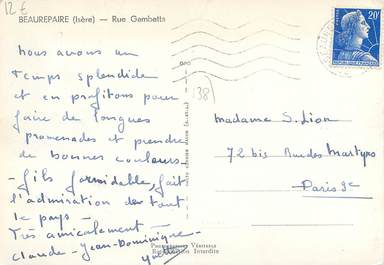 12 €
BEAUREPAIRE (Isère) — Rue Gambetta
20F
(38)
Nous avons un
temps splendide
et en profitons pour
faire de longues
promenades et prendre
de bonnes couleurs.
- fils formidable, fait
l'admiration de tout
le pays -
Très amicalement -
Claude - Jean-Dominique -
Madame S. Lion
72 bis Rue des Martyrs
Paris 9e
Photographie Véritable
Reproduction Interdite